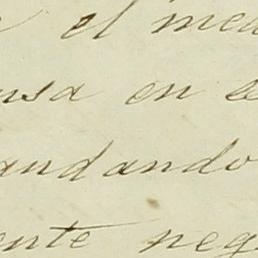 el med
nsa en e
andando
ente neg